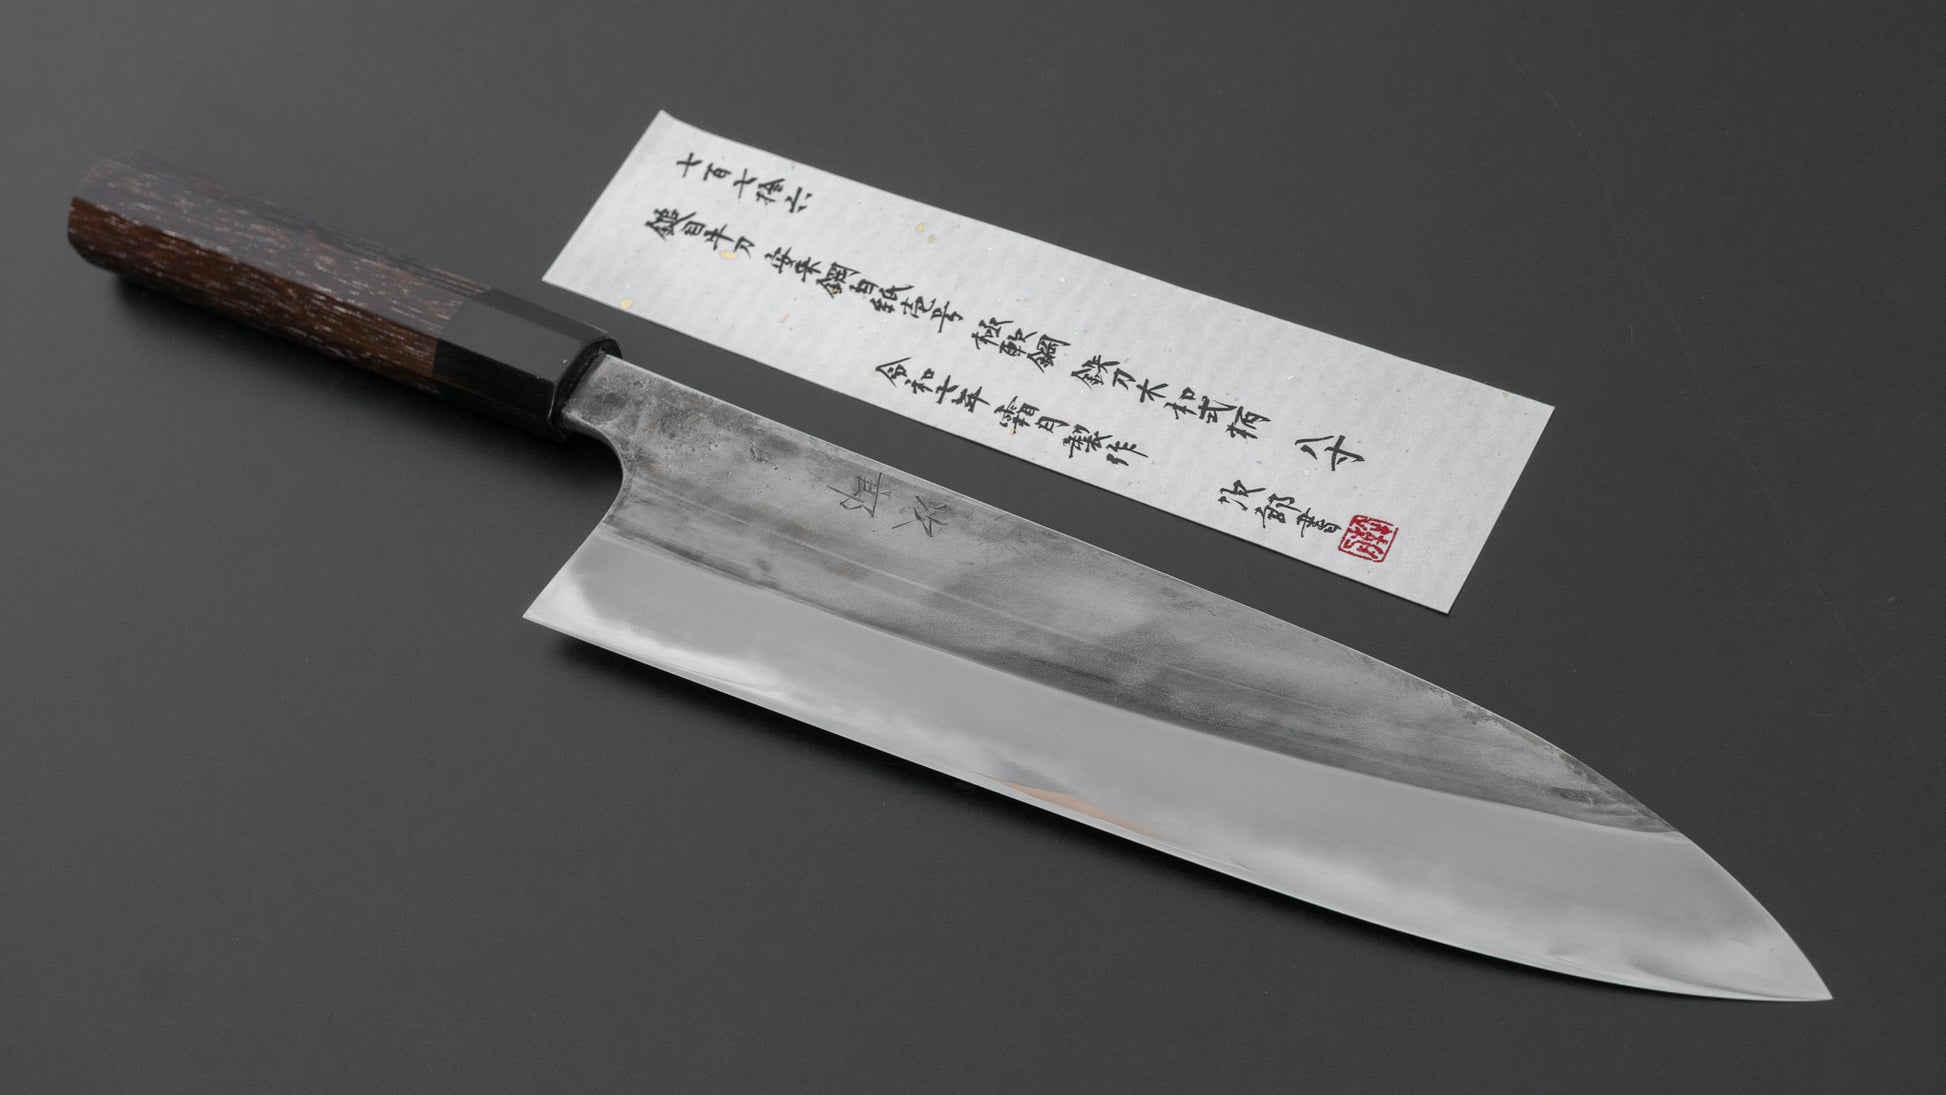 七百七拾六
鎚目牛刀 安来鋼白紙壱号 極軟鋼 鉄刀木和式柄 八寸
令和七年 霜月製作 次郎書